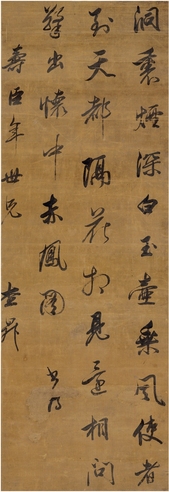 洞裏煙深白玉壺乘風使者
到天都隔花相見還相問
擎出懷中赤鳳圖 書為
壽臣年世兄 查昇